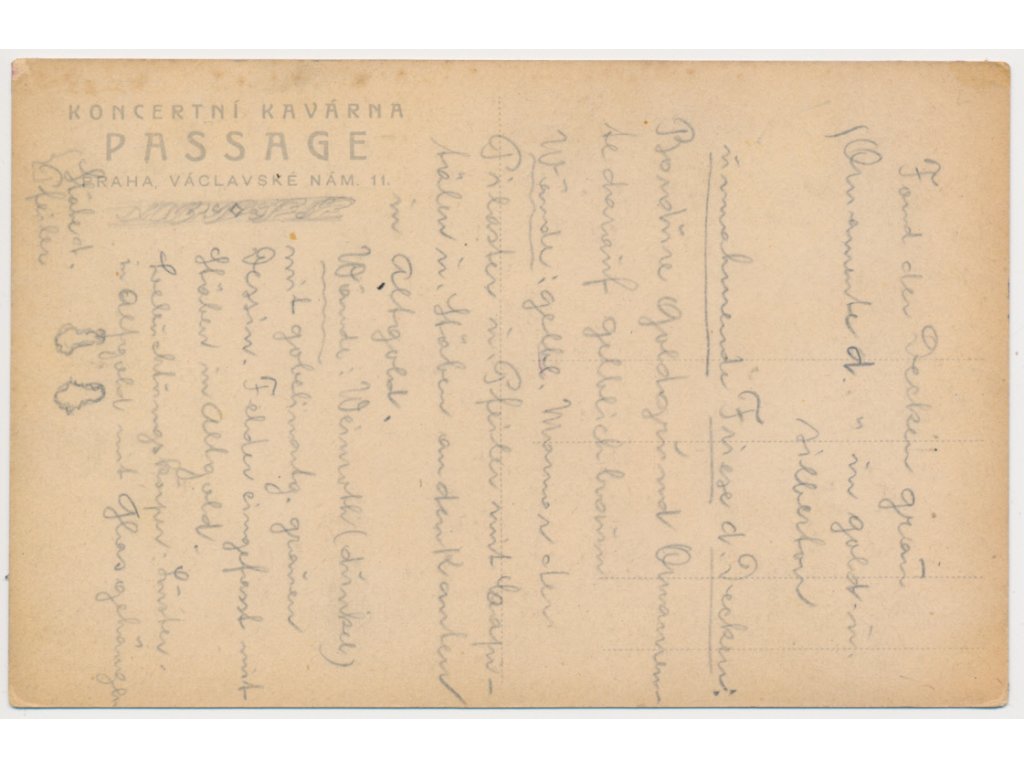 KONCERTNÍ KAVÁRNA
PASSAGE
PRAHA, VÁCLAVSKÉ NÁM. 11.
Fond der Decken grau
(Ornamente d. " in gold- u.
silberton
umrahmende Friese d. Decken:
Bordüre Goldgrund Ornamen-
te darauf gelblichbraun
Wände: gelbl. Marmor der
Pilaster u. Pfeiler mit Capi-
tälen u. Stäben an den Kanten
in Altgold.
Wände: Weinroth (dunkel)
mit gobelinartg. grauen
Dessin. Felder eingefasst mit
Stäben in Altgold.
Beleuchtungskörper. Lüster.
in Altgold mit Glasgehängen
Stäbe d.
Pfeiler